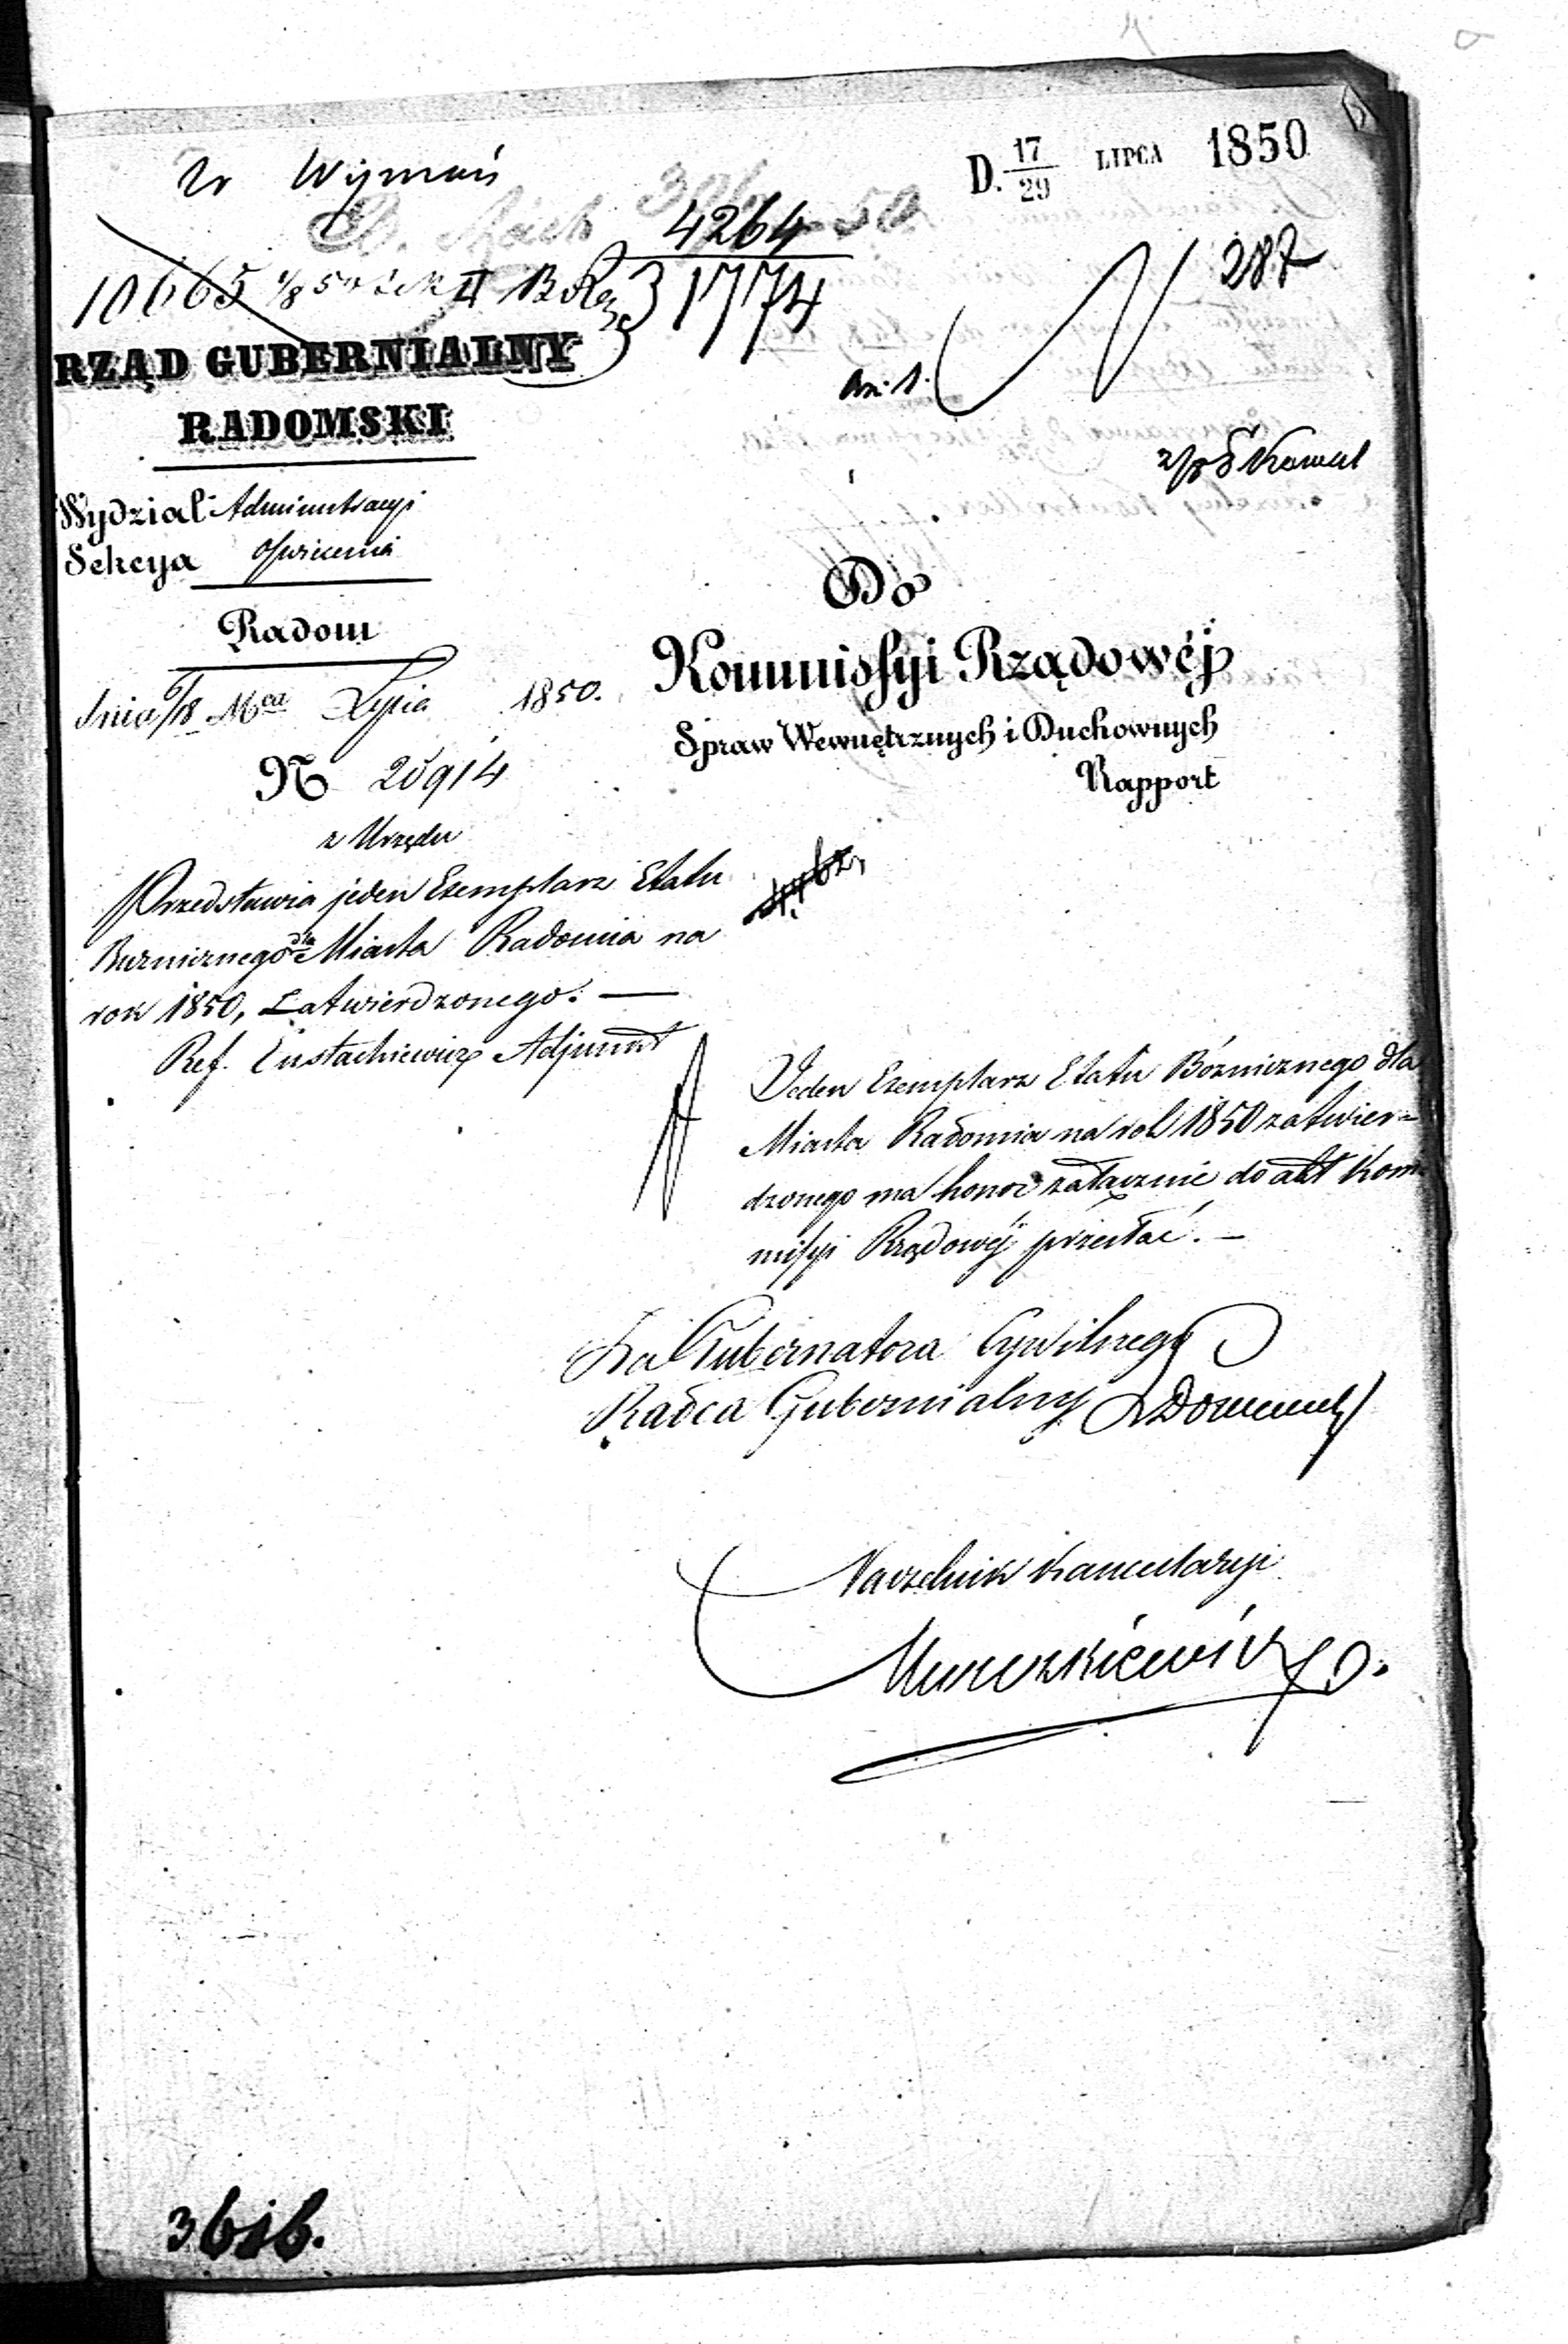 D. 17/29 LIPCA 1850
4264
10665
1774
287
RZĄD GUBERNIALNY
RADOMSKI
Wydział Administracyi
Sekcya Oświecenia
Radom
dnia 6/18 Mca Lipca 1850.
N 20914
z Urzędu
Przedstawia jeden Exemplarz Etatu
Bużnicznego dla Miasta Radomia na
rok 1850, Zatwierdzonego. —
Ref. Eustachiewicz Adjunkt
Do
Kommissyi Rządowéj
Spraw Wewnętrznych i Duchownych
Rapport
Jeden Exemplarz Etatu Bóżnicznego dla
Miasta Radomia na rok 1850 zatwier=
dzonego ma honor załącznie do akt Kom
missyi Rządowéj przesłać. —
Za Gubernatora Cywilnego
Radca Gubernialny
Naczelnik Kancelaryi